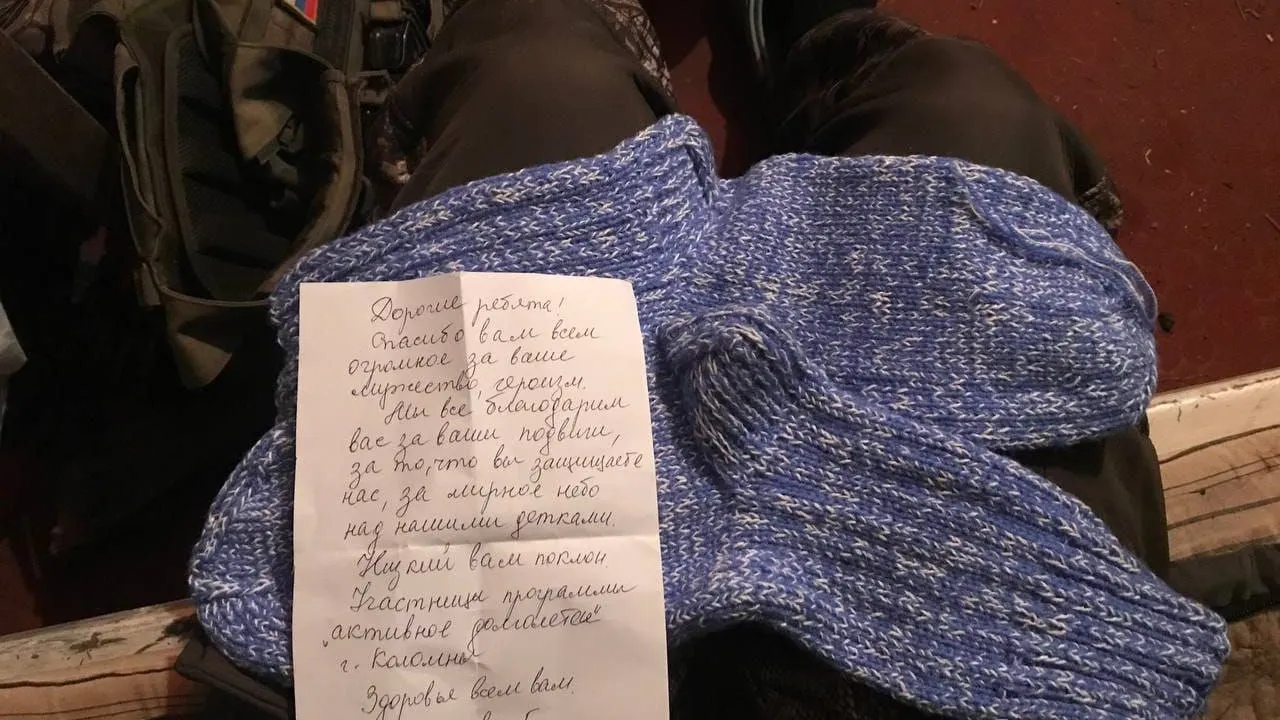 Дорогие ребята!
Спасибо вам всем
огромное за ваше
мужество, героизм.
Мы все благодарим
вас за ваши подвиги,
за то, что вы защищаете
нас, за мирное небо
над нашими детками.
Низкий вам поклон.
Участницы программы
"активное долголетие"
г. Коломны
Здоровья всем вам.